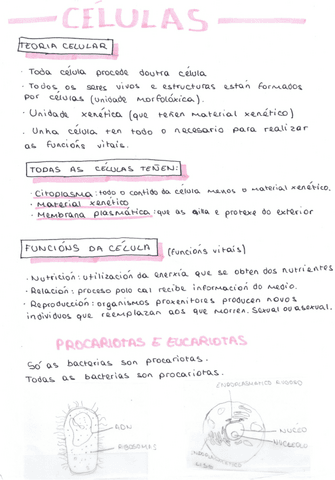 CÉLULAS
TEORIA CELULAR
· Toda célula procede doutra célula
· Todos os seres vivos e estructuras están formados
por células (unidade morfolóxica).
· Unidade xenética (que teñen material xenético)
· Unha célula ten todo o necesario para realizar
as funcións vitais.
TODAS AS CÉLULAS TEÑEN:
· Citoplasma: todo o contido da célula menos o material xenético.
· Material xenético
· Membrana plasmática: que as aílla e protexe do exterior
FUNCIÓNS DA CÉLULA (funcións vitais)
· Nutrición: utilización da enerxía que se obten dos nutrientes
· Relación: proceso polo cal recibe información do medio.
· Reproducción: organismos proxenitores producen novos
individuos que reemplazan aos que morren. Sexual ou asexual.
PROCARIOTAS E EUCARIOTAS
Só as bacterias son procariotas.
Todas as bacterias son procariotas.
ENDOPLASMÁTICO RUGOSO
ADN
RIBOSOMAS
NUCLEO
NUCLEOLO
LISO